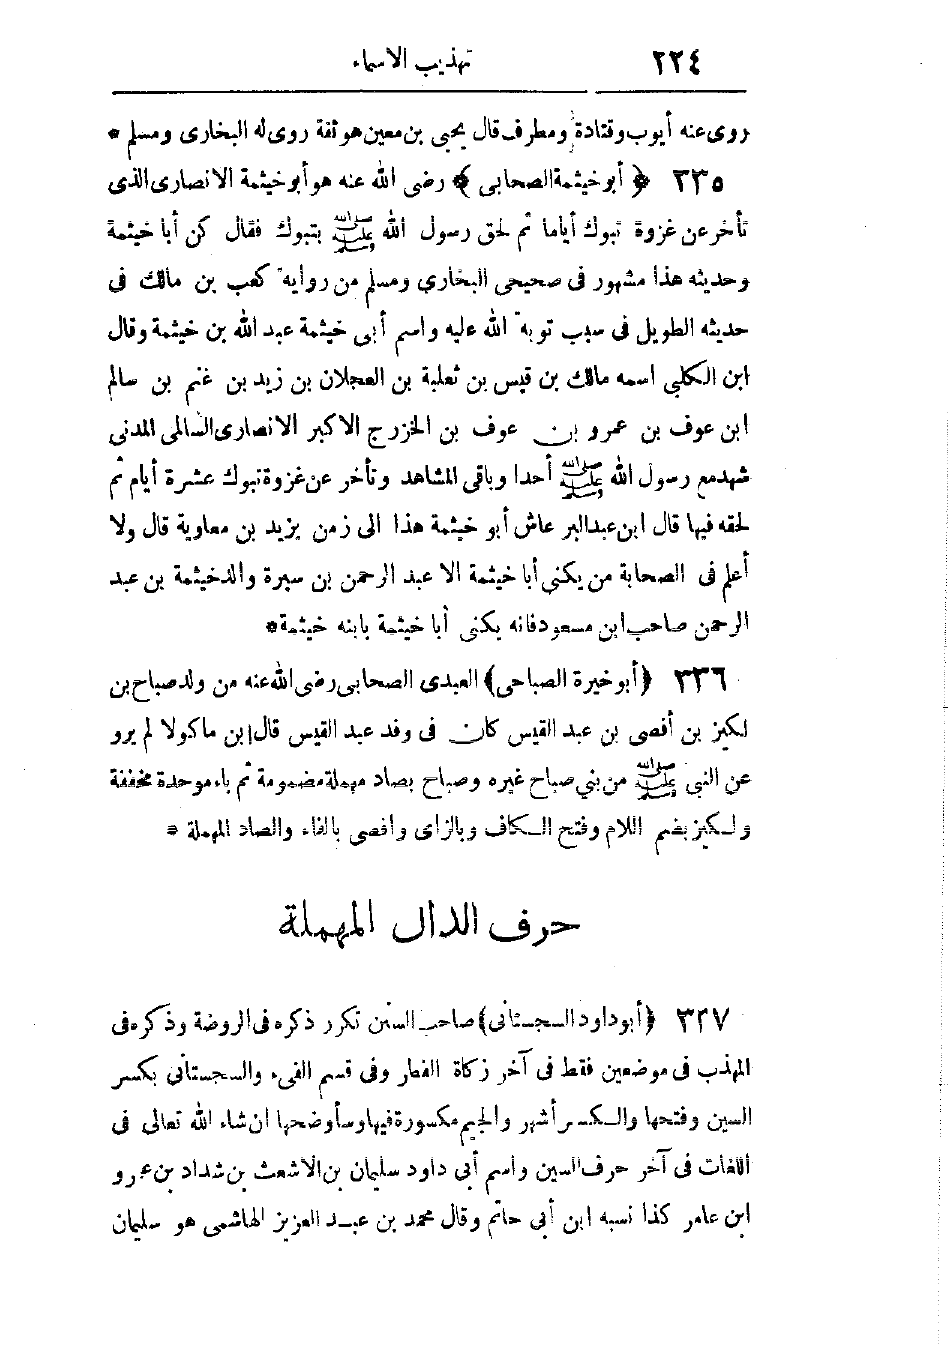 ٢٢٤ تهذيب الاسماء
روى عنه أيوب وقتادة ومطرف قال يحيى بن معين هو ثقة روى له البخارى ومسلم *
٣٣٥ ﴿ أبو خيثمة الصحابى ﴾ رضى الله عنه هو أبو خيثمة الانصارى الذى
تأخر عن غزوة تبوك أياما ثم لحق رسول الله ﷺ بتبوك فقال كن أبا خيثمة
وحديثه هذا مشهور فى صحيحى البخارى ومسلم من رواية كعب بن مالك فى
حديثه الطويل فى سبب توبة الله عليه واسم أبى خيثمة عبد الله بن خيثمة وقال
ابن الكلبي اسمه مالك بن قيس بن ثعلبة بن العجلان بن زيد بن غنم بن سالم
ابن عوف بن عمرو بن عوف بن الخزرج الاكبر الانصارى السالمى المدنى
شهد مع رسول الله ﷺ أحدا وباقى المشاهد وتأخر عن غزوة تبوك عشرة أيام ثم
لحقه فيها قال ابن عبد البر عاش أبو خيثمة هذا الى زمن يزيد بن معاوية قال ولا
أعلم فى الصحابة من يكنى أبا خيثمة الا عبد الرحمن بن سبرة والد خيثمة بن عبد
الرحمن صاحب ابن مسعود فانه يكنى أبا خيثمة بابنه خيثمة *
٣٣٦ ﴿ أبو خيرة الصباحى ﴾ العبدى الصحابى رضى الله عنه من ولد صباح بن
لكيز بن أفصى بن عبد القيس كان فى وفد عبد القيس قال ابن ماكولا لم يرو
عن النبى ﷺ من بني صباح غيره وصباح بصاد مهملة مضمومة ثم باء موحدة مخففة
ولكيز بضم اللام وفتح الكاف وبالزاى وافصى بالفاء والصاد المهملة *
حرف الدال المهملة
٣٢٧ ﴿ أبو داود السجستانى ﴾ صاحب السنن تكرر ذكره فى الروضة وذكره فى
المهذب فى موضعين فقط فى آخر زكاة الفطر وفى قسم الفىء والسجستانى بكسر
السين وفتحها والكسر أشهر والجيم مكسورة فيها وسأوضحها ان شاء الله تعالى فى
اللغات فى آخر حرف السين واسم أبى داود سليمان بن الاشعث بن شداد بن عمرو
ابن عامر كذا نسبه ابن أبي حاتم وقال محمد بن عبد العزيز الهاشمى هو سليمان